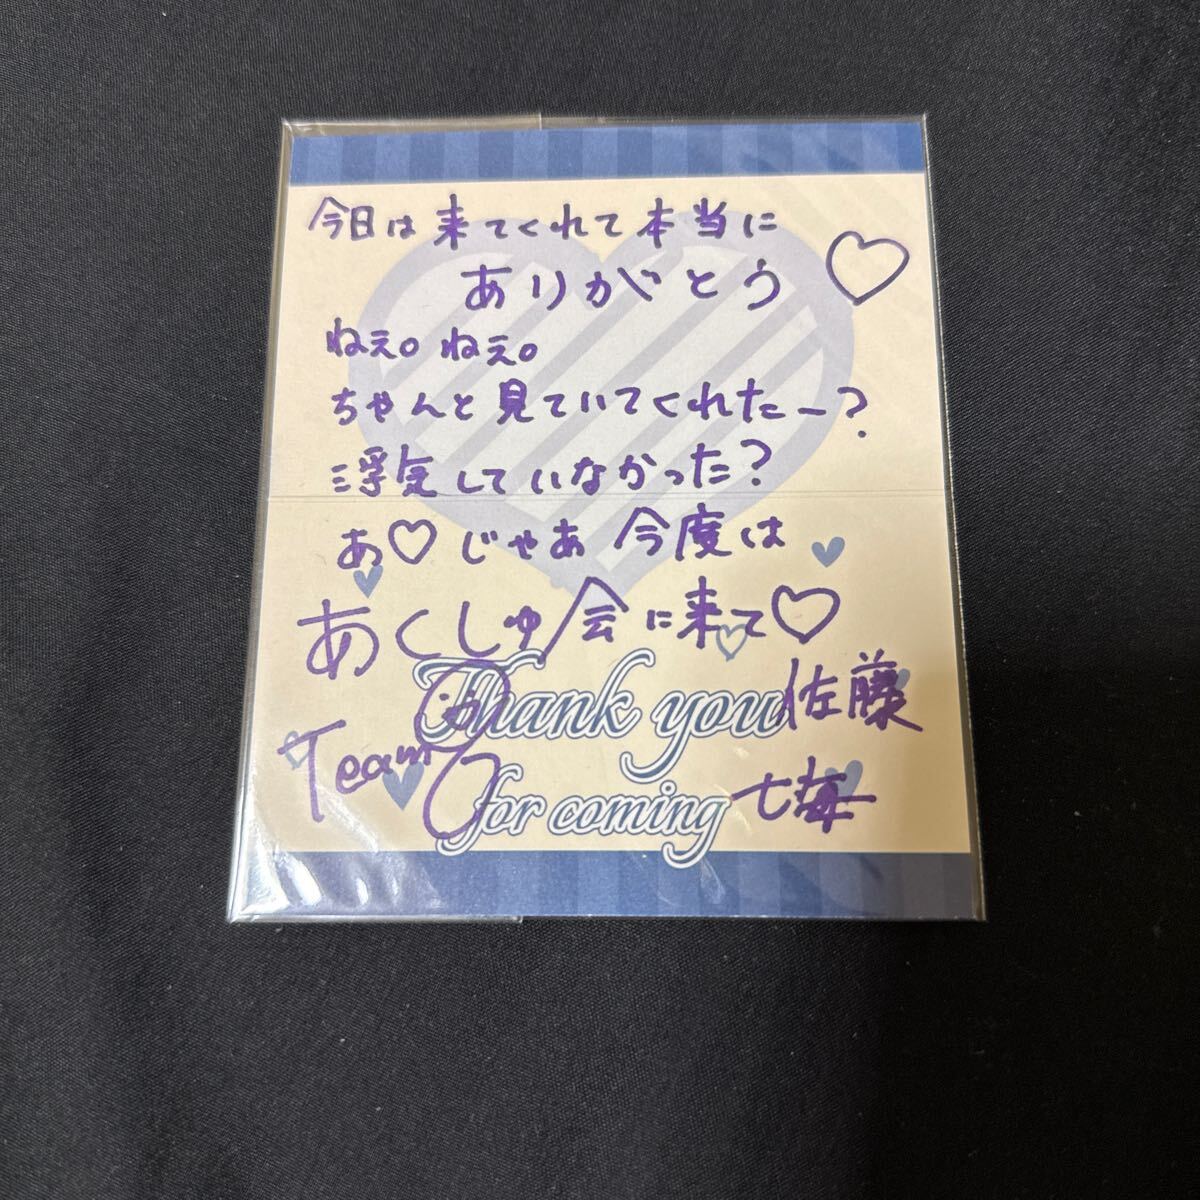 今日は来てくれて本当に
ありがとう♡
ねぇ。ねぇ。
ちゃんと見ていてくれたー?
浮気していなかった?
あ♡じゃあ今度は
あくしゅ会に来て♡
Thank you
佐藤
Team
for coming
七海